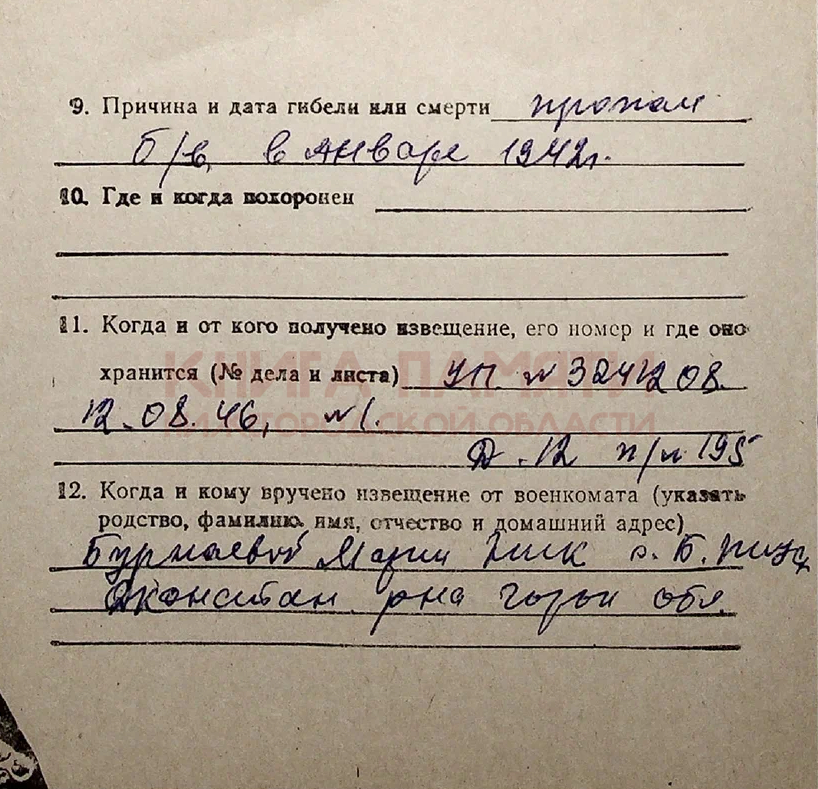 9. Причина и дата гибели или смерти пропал
б/в, в январе 1942г.
10. Где и когда похоронен
11. Когда и от кого получено извещение, его номер и где оно
хранится (№ дела и листа) УП. № 3241208.
КНИГА ПАМЯТИ
12.08.46, №1.
НИЖЕГОРОДСКОЙ ОБЛАСТИ
Д. 12 п/л 195
12. Когда и кому вручено извещение от военкомата (указать
родство, фамилию, имя, отчество и домашний адрес)
Марии с. Б.
р-на Горьк обл.